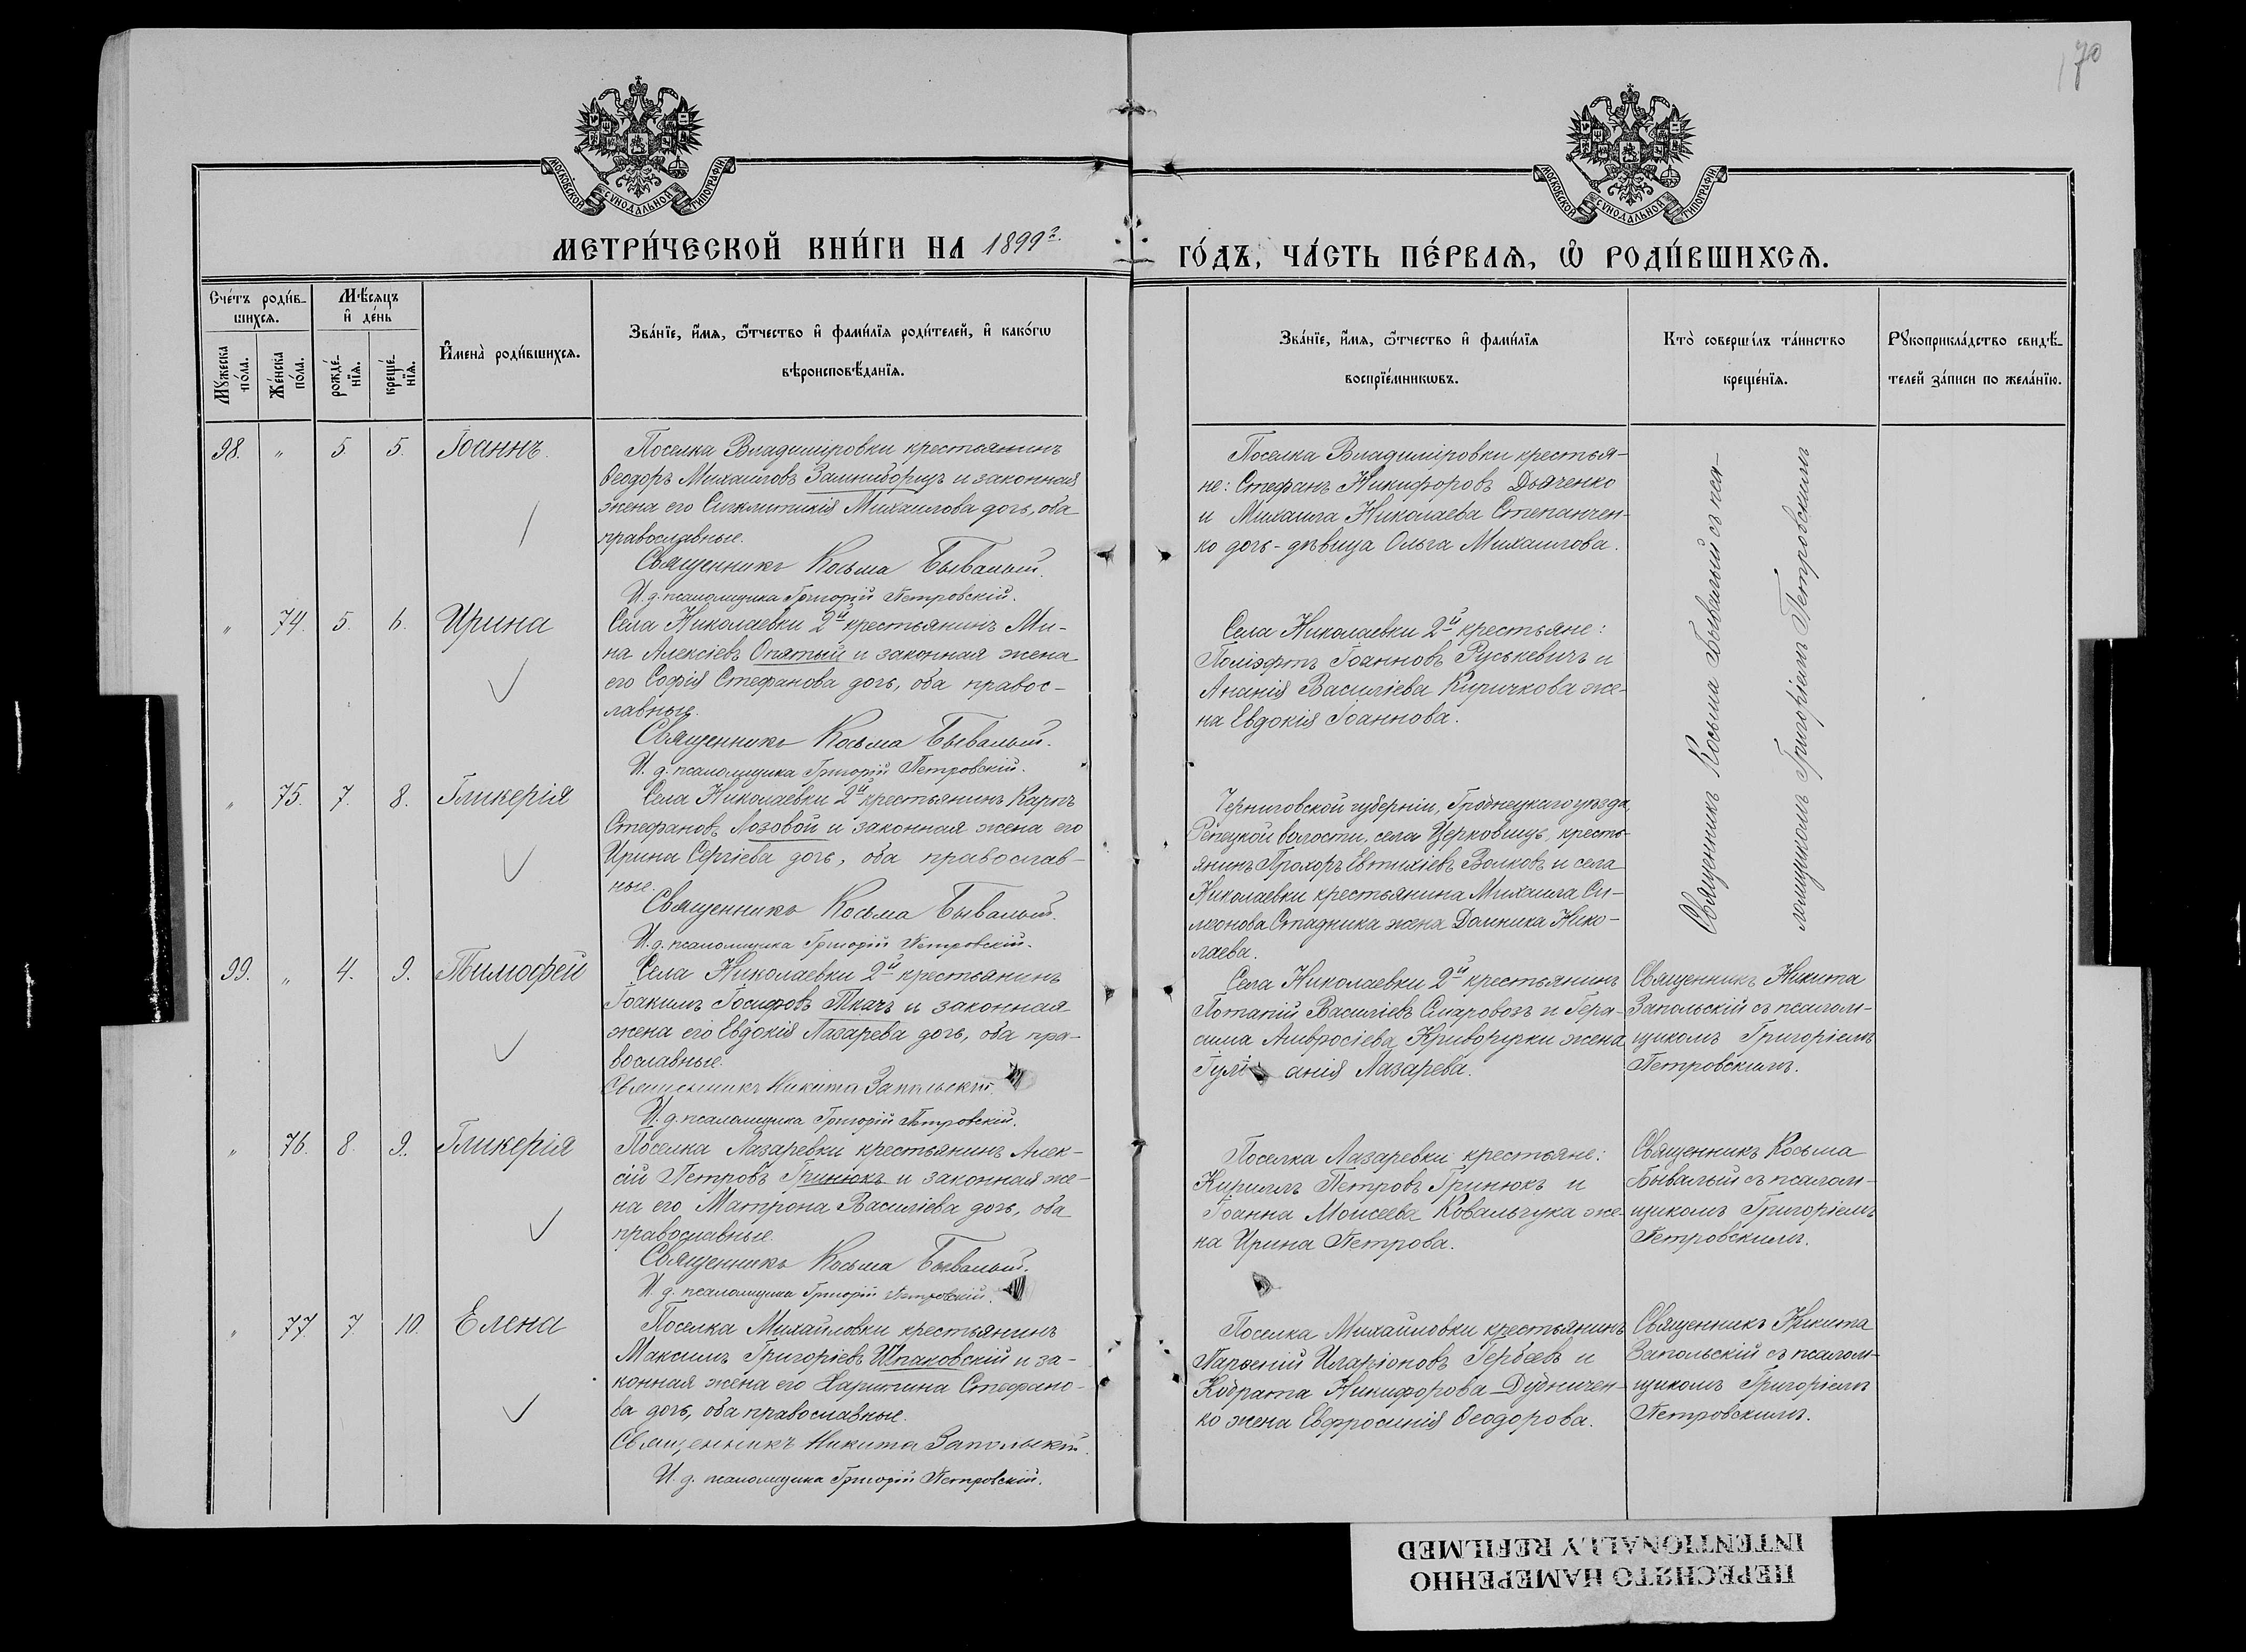 170
МОСКОВСКОЙ СУНОДАЛЬНОЙ ТИПОГРАФІИ
МОСКОВСКОЙ СУНОДАЛЬНОЙ ТИПОГРАФІИ
МЕТРИ́ЧЕСКОЙ КНИ́ГИ НА 1899 г.
ГО́ДЪ, ЧА́СТЬ ПЕ́РВАѦ, Ѡ РОДИ́ВШИХСѦ.
Сче́тъ роди́в-
шихсѧ.
Мѣ́сяцъ
и де́нь
Мꙋ́жеска по́ла.
Же́нска по́ла.
рожде́-нїѧ.
креще́-нїѧ.
Имена̀ роди́вшихсѧ.
Зва́нїе, и́мѧ, ѻ҆́тчество и фами́лїѧ роди́телей, и како́гѡ
вѣроисповѣ́данїѧ.
Зва́нїе, и́мѧ, ѻ҆́тчество и фами́лїѧ
воспрїе́мникѡвъ.
Кто̀ соверши́лъ та́инство
креще́нїѧ.
Рꙋкоприкла́дство свидѣ́-
телей за́писи по жела́нїю.
98. " 5. 5. Іоаннъ.
Поселка Владиміровки крестьянинъ
Ѳеодоръ Михаиловъ и законная
жена его Синклитикія Михаилова дочь, оба
православные.
Священникъ Косьма Бывалый.
И. д. псаломщика Григорій Петровскій.
Поселка Владиміровки крестья-
не: Стефанъ Никифоровъ Дьяченко
и Михаила Николаева Степанчен-
ко дочь - дѣвица Ольга Михаилова.
Священникъ Косьма Бывалый съ пса-
ломщикомъ Григоріемъ Петровскимъ
" 74. 5. 6. Ирина
Села Николаевки 2й крестьянинъ Ми-
на Алексіевъ Опятый и законная жена
его Софія Стефанова дочь, оба правос-
лавные.
Священникъ Косьма Бывалый.
И. д. псаломщика Григорій Петровскій.
Села Николаевки 2й крестьяне:
Поліэктъ Іоанновъ Руськевичъ и
Ананія Василіева Киричкова же-
на Евдокія Іоаннова.
" 75. 7. 8. Гликерія
Села Николаевки 2й крестьянинъ Карпъ
Стефановъ Лозовой и законная жена его
Ирина Сергіева дочь, оба православ-
ные.
Священникъ Косьма Бывалый.
И. д. псаломщика Григорій Петровскій.
Черниговской губерніи, уѣзда,
Репецкой волости, села Церковищъ, кресть-
янинъ Прохоръ Евтихіевъ Волковъ и села
Николаевки крестьянина Михаила Си-
меонова Стадника жена Домника Нико-
лаева.
99. " 4. 9. Тимоѳей
Села Николаевки 2й крестьянинъ
Іоакимъ Іосифовъ Ткачъ и законная
жена его Евдокія Лазарева дочь, оба пра-
вославные.
Священникъ Никита Запольскій.
И. д. псаломщика Григорій Петровскій.
Села Николаевки 2й крестьянинъ
Потапій Василіевъ и Гера-
сима Амвросіева Криворучки жена
Іулі анія Лазарева.
Священникъ Никита
Запольскій съ псалом-
щикомъ Григоріемъ
Петровскимъ.
" 76. 8. 9. Гликерія
Поселка Лазаревки крестьянинъ Алек-
сій Петровъ Гринюкъ и законная же-
на его Матрона Василіева дочь, оба
православные.
Священникъ Косьма Бывалый.
И. д. псаломщика Григорій Петровскій.
Поселка Лазаревки крестьяне:
Кириллъ Петровъ Гринюкъ и
Іоанна Моисеева Ковальчука же-
на Ирина Петрова.
Священникъ Косьма
Бывалый съ псалом-
щикомъ Григоріемъ
Петровскимъ.
" 77. 7. 10. Елена
Поселка Михайловки крестьянинъ
Максимъ Григоріевъ Шпаковскій и за-
конная жена его Харитина Стефано-
ва дочь, оба православные.
Священникъ Никита Запольскій.
И. д. псаломщика Григорій Петровскій.
Поселка Михайловки крестьянинъ
Парѳеній Иларіоновъ и
Кодрата Никифорова Дудниченко-
ко жена Евфросинія Ѳеодорова.
Священникъ Никита
Запольскій съ псалом-
щикомъ Григоріемъ
Петровскимъ.
ПЕРЕСНЯТО НАМЕРЕННО
INTENTIONALLY REFILMED